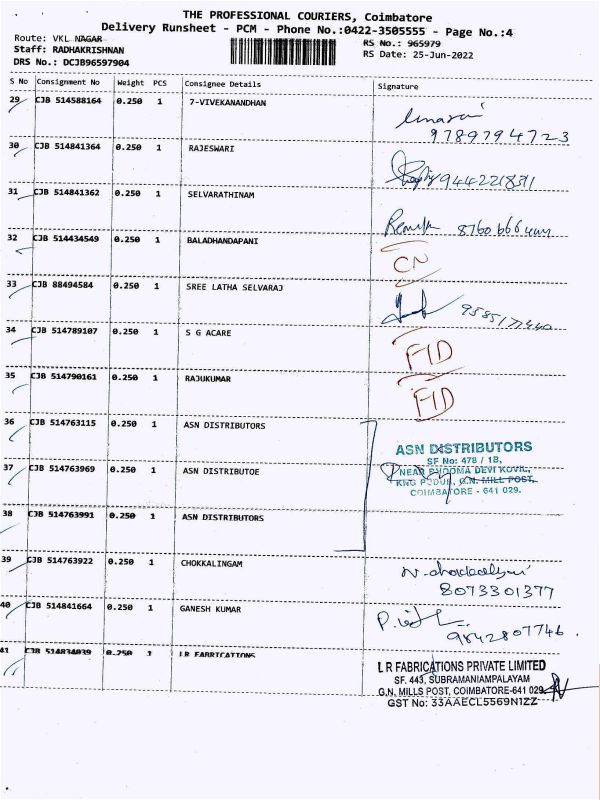 THE PROFESSIONAL COURIERS, Coimbatore
Delivery Runsheet - PCM - Phone No.:0422-3505555 - Page No.:4
Route: VKL NAGAR
Staff: RADHAKRISHNAN
DRS No.: DCJB96597904
RS No.: 965979
RS Date: 25-Jun-2022
S No Consignment No Weight PCS Consignee Details Signature
29 CJB 514588164 0.250 1 7-VIVEKANANDHAN
9789794723
30 CJB 514841364 0.250 1 RAJESWARI
31 CJB 514841362 0.250 1 SELVARATHINAM
32 CJB 514434549 0.250 1 BALADHANDAPANI
CN
33 CJB 88494584 0.250 1 SREE LATHA SELVARAJ
34 CJB 514789107 0.250 1 S G ACARE
FID
35 CJB 514790161 0.250 1 RAJUKUMAR
FID
36 CJB 514763115 0.250 1 ASN DISTRIBUTORS
ASN DISTRIBUTORS
SF No: 478 / 1B,
37 CJB 514763969 0.250 1 ASN DISTRIBUTOE
NEAR BHOOMA DEVI KOVIL,
G.N. MILL POST,
COIMBATORE - 641 029.
38 CJB 514763991 0.250 1 ASN DISTRIBUTORS
39 CJB 514763922 0.250 1 CHOKKALINGAM
8073301377
40 CJB 514841664 0.250 1 GANESH KUMAR
9842807746
41 CJB 514834039 0.250 1 LR FABRICATIONS
L R FABRICATIONS PRIVATE LIMITED
SF. 443, SUBRAMANIAMPALAYAM
G.N. MILLS POST, COIMBATORE-641 029.
GST No: 33AAECL5569N1ZZ